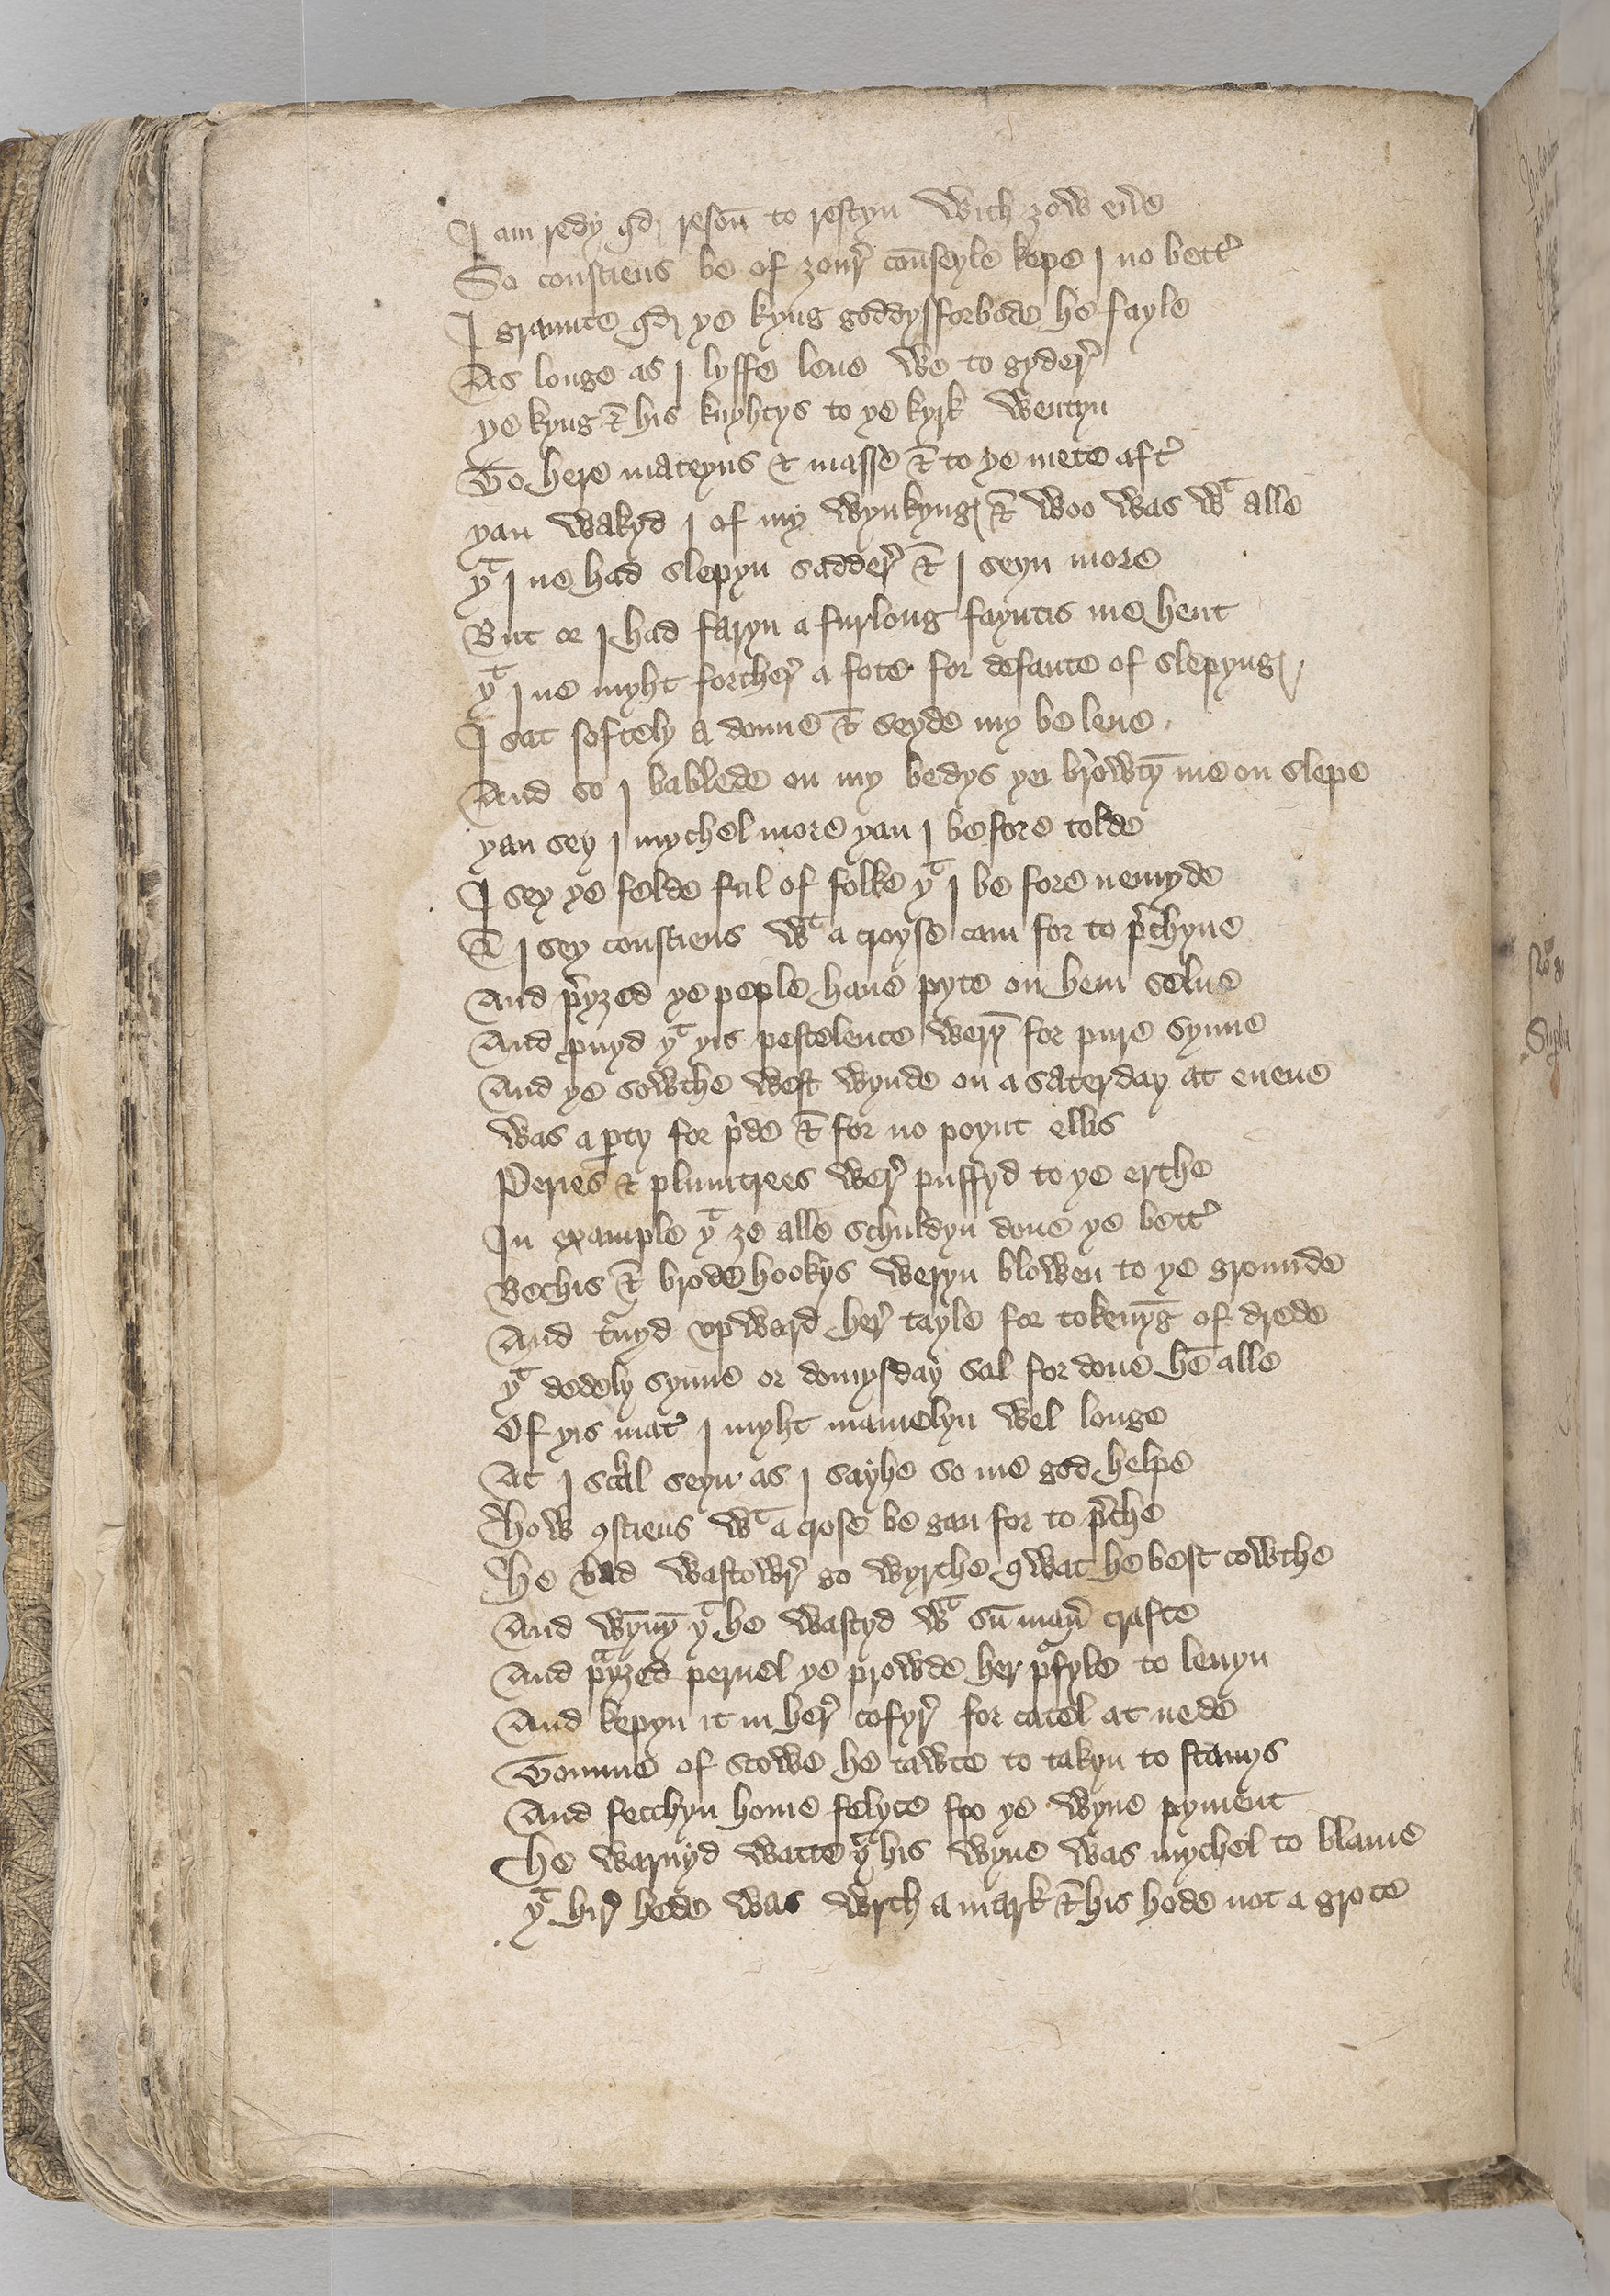 I am redy qd resoū to restyn with zow eūe
So consciens be of zoure coūseyle kepe I no bettr
I graunte qd ye kyng goddysforbode he fayle
As longe as I lyffe leue we to gyder
ye kyng & his knyhtys to ye kyrk wentyn
To here mateyns & masse & to ye mete aftr
yan wakyd I of my wynkyng & woo was wt alle
yt I ne had slepyn sadder & I seyn more
But or I had faryn a furlong fayntis me hent
yt I ne myht forther a fote for defaute of slepyng
I sat softely a doune & seyde my be leue
And so I bablede on my bedys yei browtȳ me on slepe
yan sey I mychel more yan I before tolde
I sey ye felde ful of folke yt I be fore nemyde
& I sey consciens wt a croyse cam for to p̄chyne
And p̄yzed ye peple haue pyte on hem selue
And puyd yt yis pestelence werȳ for pure synne
And ye sowthe west wynde on a saterday at euene
was aꝑty for pͥde & for no poynt ellis
Peries & plumtrees wer puffyd to ye erthe
In example yt ze alle schuldyn done ye bettr
Bechis & brode hookys weryn blowen to ye grounde
And t̄nyd vpward her tayle for tokenȳg of drede
yt dedely synne or domysday sal fordone hē alle
Of yis matr I myht mamelyn wel longe
At I schal seyn as I sayhe so me god helpe
How ꝯciens wt a crose be gan for to p̄che
He bad wastowr go wyrche qwat he best cowthe
And wȳnȳ yt he wastyd wt sū man̄ crafte
And payzed pernel ye prowde her pͦfyle to leuyn
And kepyn it in her cofyr for catel at nede
Tomme of stowe he tawte to takyn to stauys
And fecchyn home felyce fro ye wyne pyment
He warnyd watte yt his wyue was mychel to blame
yt hir hede was wrth a mark & his hode not a grote